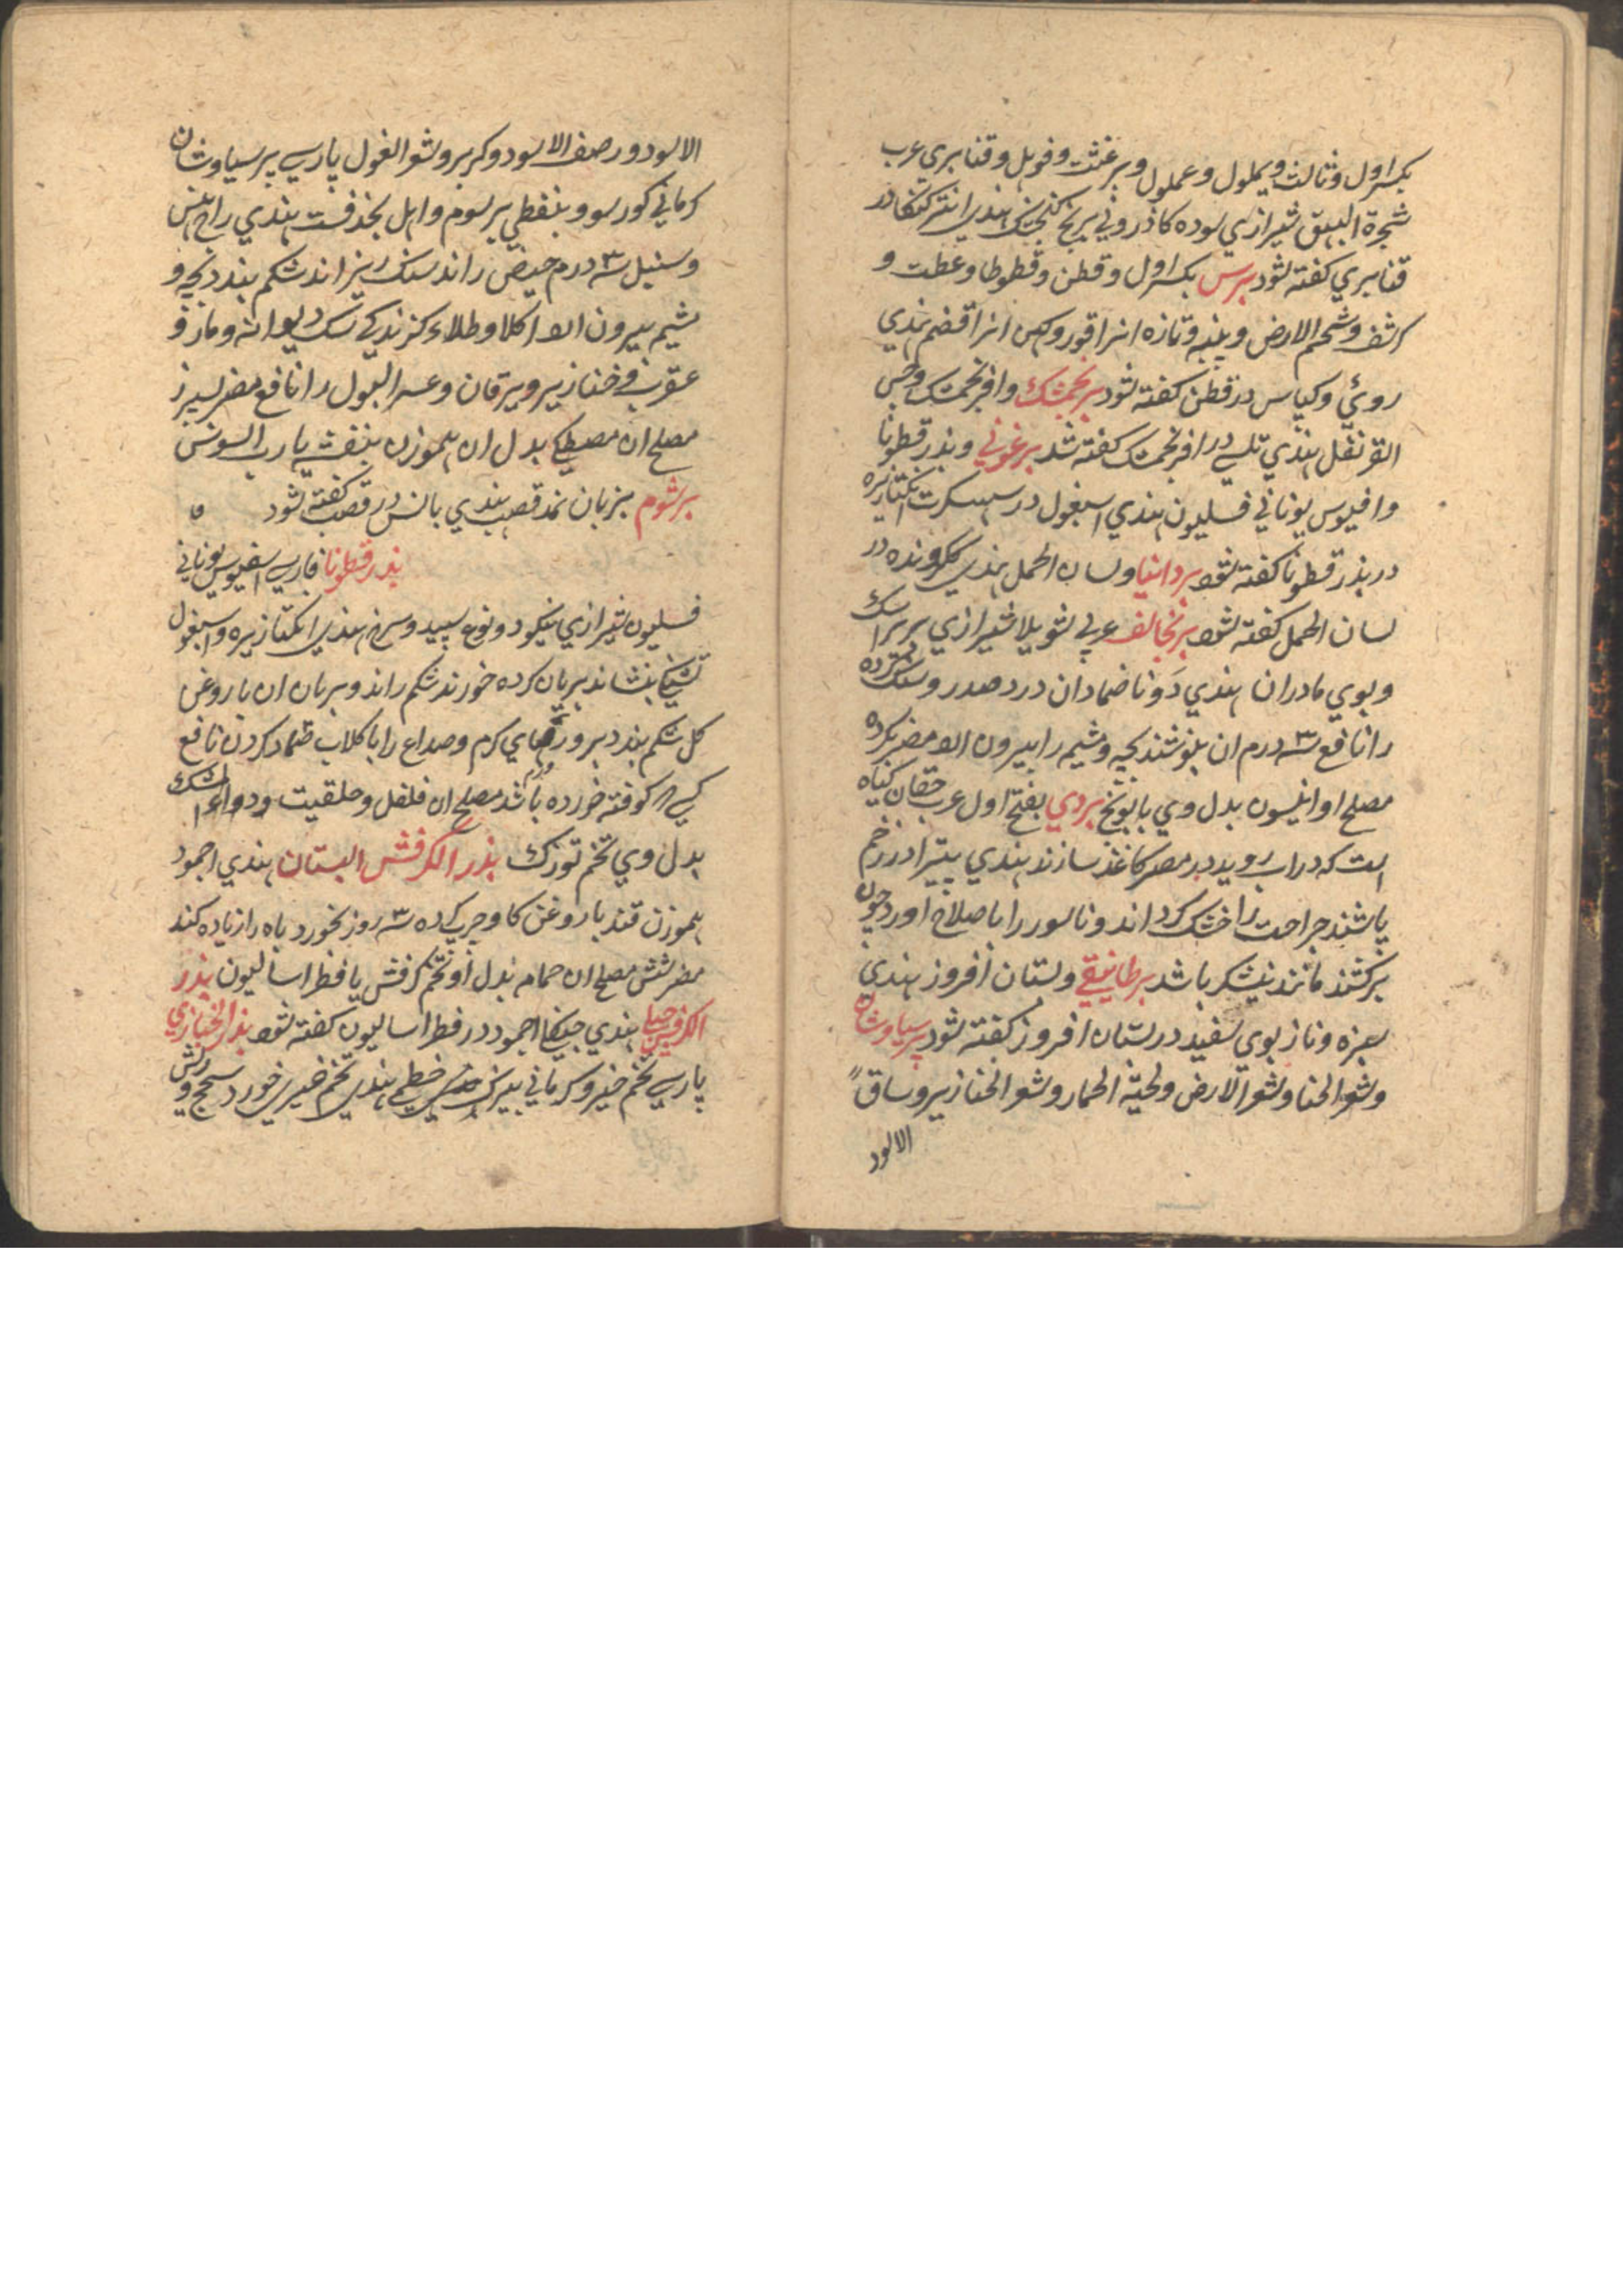 بکسر اول و ثالث و یملول و عملول و برغشت و فویل و قنابری عرب
شجرة البهق شیرازی سوده کاذرونی برنج کنجشک هندی
قنابری کفته شود برس بکسر اول و قطن و قطوطا و عطت و
کرشف و شحم الارض و پنبه و تازه انرا قور و کهن انرا قضم هندی
روئی و کپاس در قطن کفته شود برنجمشک و افرنجمشک و حبق
القرنفل هندی تلسی در افرنجمشک کفته شد برغوثی و بذر قطونا
و افیوس یونانی فسلیون هندی اسبغول در سهسکرت
در بذر قطونا کفته شود بردانیا و لسان الحمل هندی در
لسان الحمل کفته شود برنجالف عربی شویلا شیرازی
و بوی مادران هندی دونا ضماد ان درد صدر و سنک کرده
را نافع ۳ درم ان بنوشند بچه و مشیمه را بیرون ارد مضر بکرده
مصلح او انیسون بدل وی بابونج بردی بفتح اول عرب حفان کیاه
است که در اب روید در مصر کاغذ سازند هندی پتیرا در زخم
پاشند جراحت را خشک کرداند و ناسور را باصلاح اورد چون
برکشند مانند نیشکر باشد برطانیقی و بستان افروز هندی
سبزه و نازبوی سفید در بستان افروز کفته شود پرسیاوشان
و شعر الجن و شعر الارض و لحیة الحمار و شعر الخنازیر و ساق
الاسود
الاسود و رصف الاسود و کربر و شعر الغول پارسی پرسیاوشان
کرمانی کورسو و بنفطی برسوم و اهل بخد فست هندی راج هنس
و سنبل ۳ درم حیض راند سنک ریزاند شکم بندد بچه و
مشیمه بیرون ارد اکلا و طلاء کزندکی سک دیوانه و مار و
عقرب و خنازیر و یرقان و عسر البول را نافع مضر سپرز
مصلح ان مصطکی بدل ان هموزن بنفشه یا رب السوس
برشوم بزبان قصب هندی بانس در قصب کفته شود
بذر قطونا فارسی اسفیوس یونانی
فسلیون شیرازی بنکو دو نوع سپید و سرخ هندی و اسبغول
تشنکی بنشاند بریان کرده خورند شکم راند و بریان ان با روغن
کل شکم بندد بر ورمهای کرم و صداع را با کلاب ضماد کردن نافع
کوفته خورده باشد مصلح ان فلفل و حلقیت و دواء المشک
بدل وی تخم تورک بذر الکرفش البستان هندی اجمود
هموزن قند با روغن کاو چرب کرده ۳ روز بخورد باه را زیاده کند
مضر شش مصلح ان حمام بدل او تخم کرفش یا فطراسالیون بذر
الکرفس جبلی هندی اجمود در فطراسالیون کفته شود بذر الخبازی
پارسی تخم خیرو کرمانی خطمی هندی تخم خیری خورد سحج و ریش